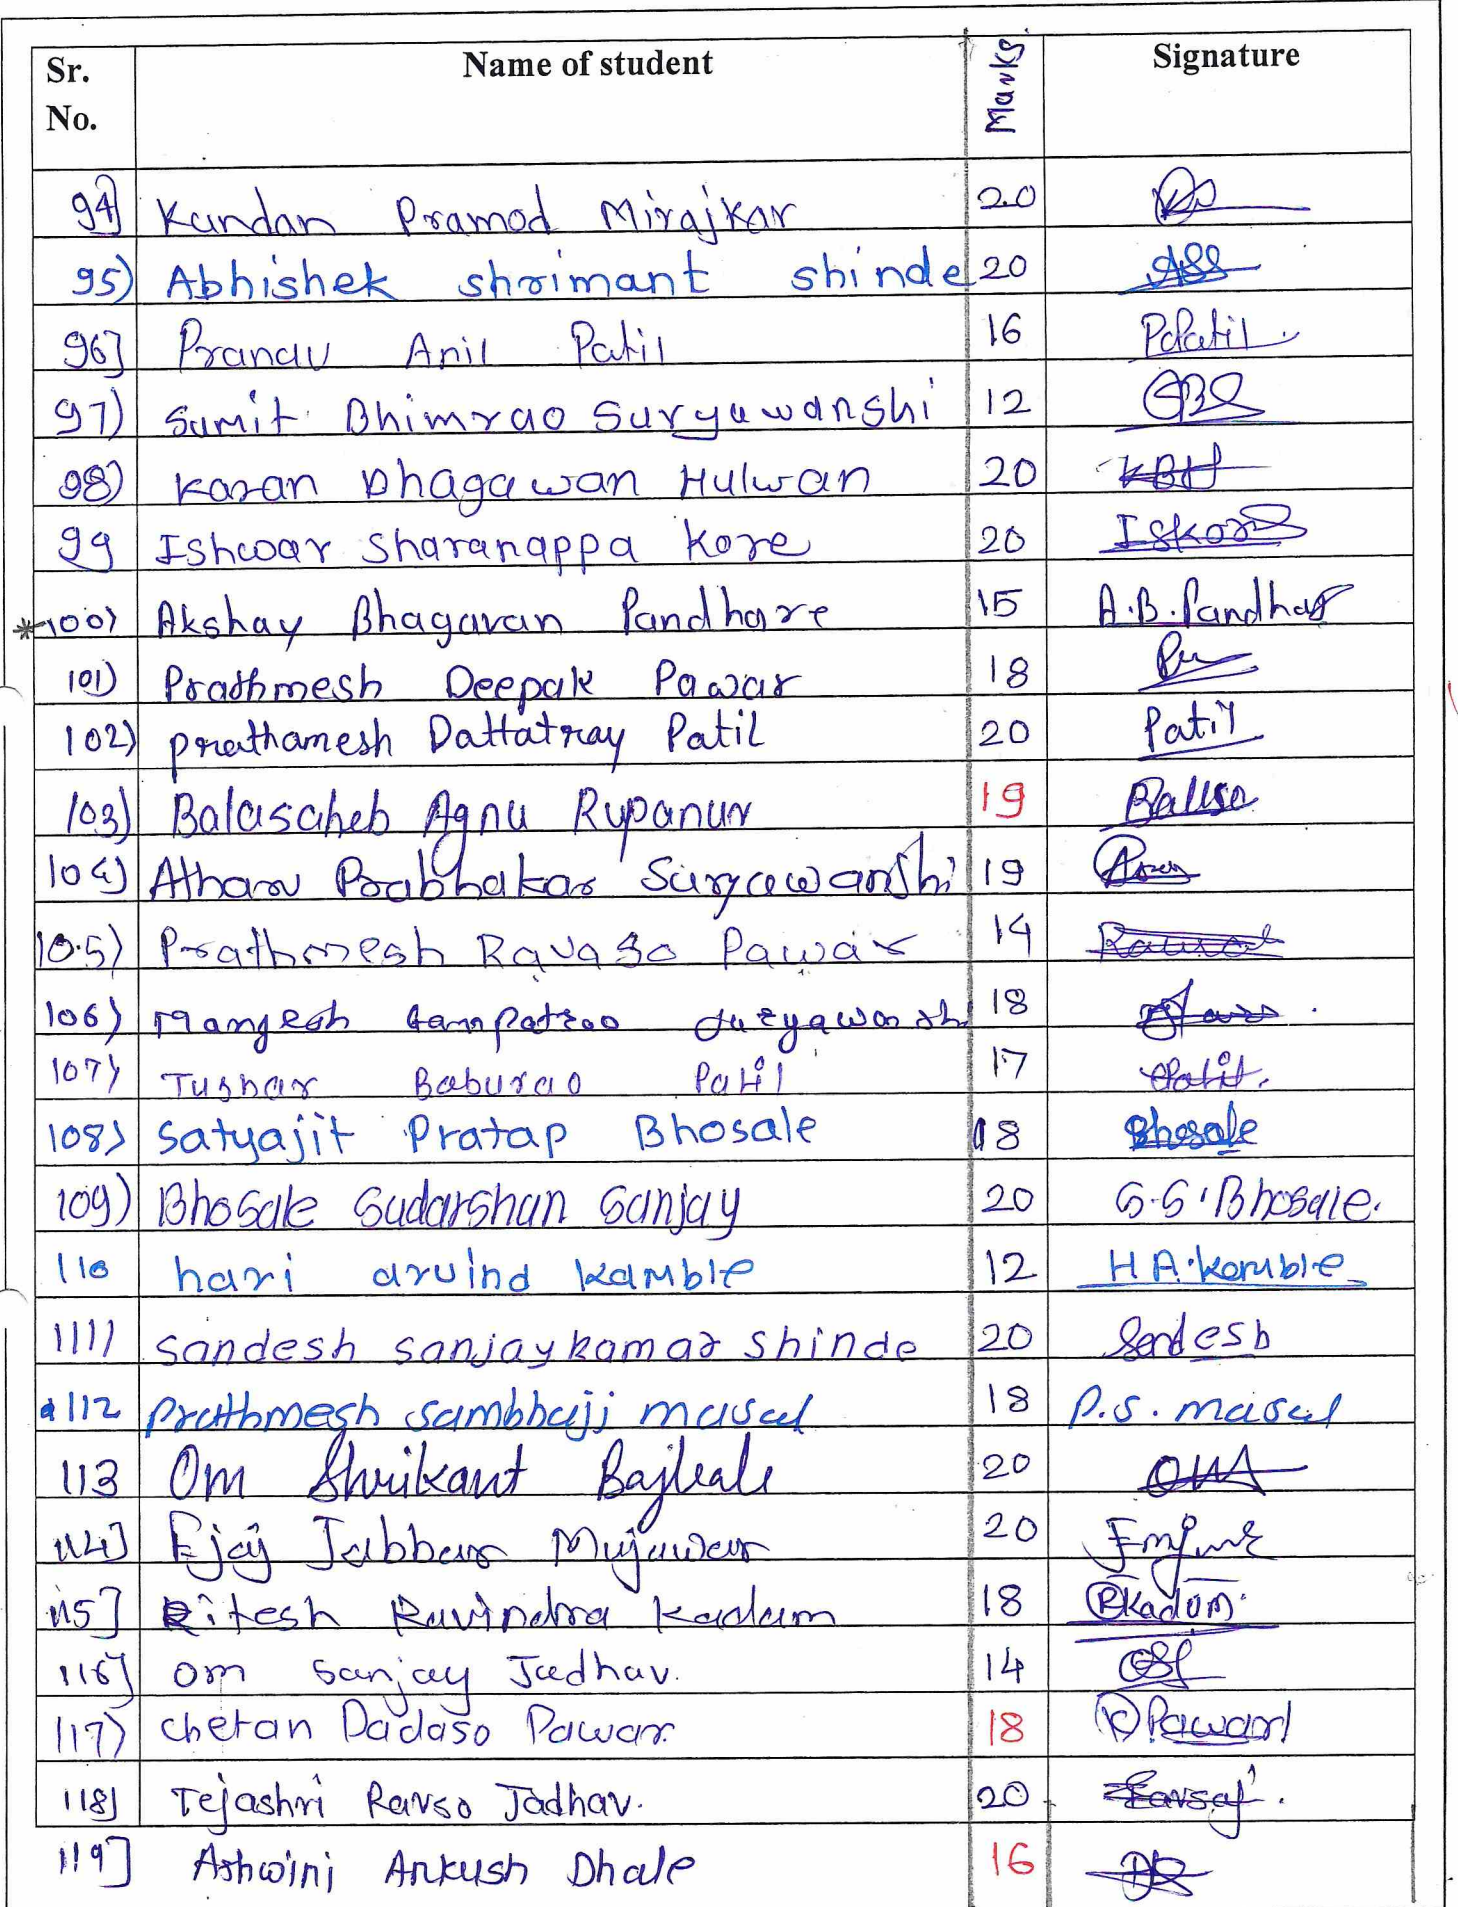 Sr. No. Name of student Marks. Signature
94] Kundan Pramod Mirajkar 20
95) Abhishek shrimant shinde 20 ASS
96] Pranav Anil Patil 16 PAPatil
97) Sumit Bhimrao Suryawanshi 12 SBS
98) Karan Bhagawan Hulwan 20 KBH
99 Ishwar Sharanappa Kore 20 ISKore
*100) Akshay Bhagavan Pandhare 15 A.B.Pandhare
101) Prathmesh Deepak Pawar 18
102) Prathamesh Dattatray Patil 20 Patil
103) Balasaheb Agnu Rupanur 19 Balasa
104) Atharv Prabhakar Suryawanshi 19
105) Prathmesh Ravaso Pawar 14
106) Mangesh Ganpatrao Suryawanshi 18
107) Tushar Baburao Patil 17 Patil.
108) Satyajit Pratap Bhosale 18 Bhosale
109) Bhosale Sudarshan Sanjay 20 S.S.Bhosale.
110 hari arvind kamble 12 H A.kamble
111) Sandesh sanjaykumar shinde 20 Sandesh
112 Prathmesh sambhaji masal 18 P.S. masal
113 Om Shrikant Bajbale 20 OM
114] Ejaj Jabbar Mujawar 20
115] Ritesh Ravindra Kadam 18 RKadam.
116] Om Sanjay Jadhav. 14 OSJ
117) Chetan Dadaso Pawar 18 Pawar
118] Tejashri Ravso Jadhav. 20
119] Ashwini Ankush Dhale 16